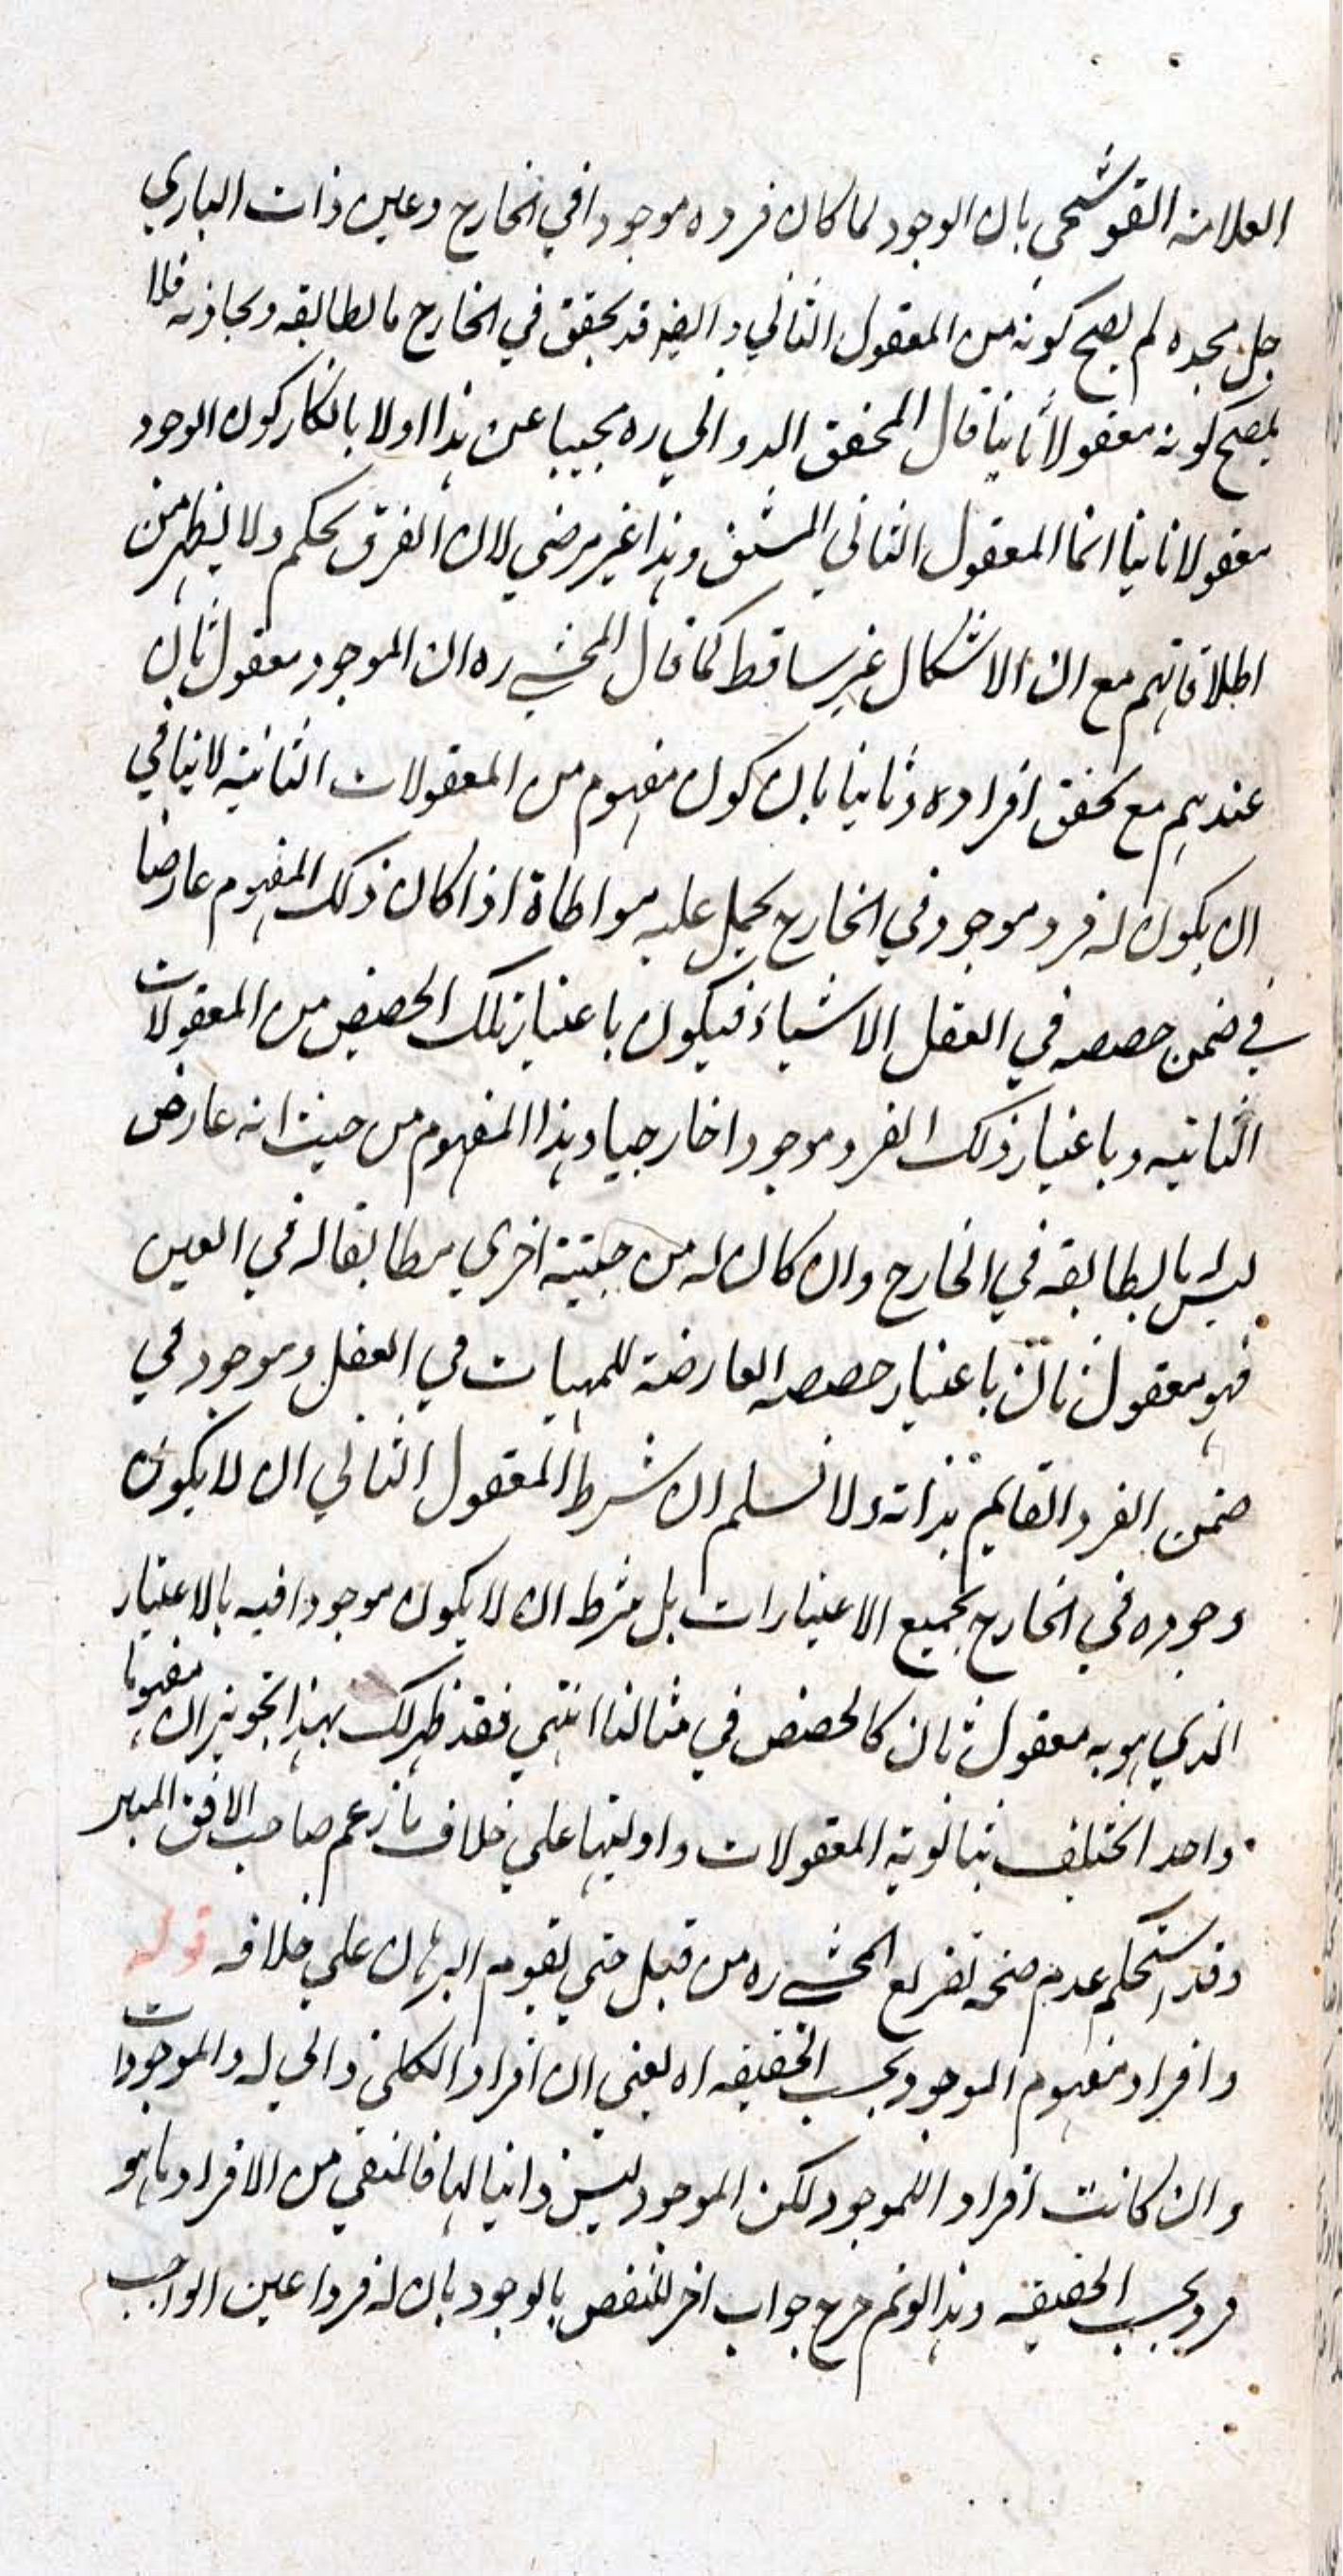 العلامة القوشجي بان الوجود لما كان فرده موجودا في الخارج وعين ذات الباري
جل مجده لم يصح كونه من المعقول الثاني وايضا قد يحقق في الخارج ما يطابقه ويحاذيه فلا
يصح كونه معقولا ثانيا قال المحقق الدواني ره مجيبا عن هذا اولا بانكار كون الوجود
معقولا ثانيا انما المعقول الثاني المشتق وهذا غير مرضي لان الفرق تحكم ولا يظهر من
اطلاقاتهم مع ان الاشكال غير ساقط كما قال المحشي ره ان الموجود معقول ثان
عندهم مع تحقق افراده وثانيا بان كون مفهوم من المعقولات الثانية لا ينافي
ان يكون له فرد موجود في الخارج يحمل عليه مواطاة اذا كان ذلك المفهوم عارضا
في ضمن حصصه في العقل الاشياء فيكون باعتبار تلك الحصص من المعقولات
الثانية وباعتبار ذلك الفرد موجودا خارجيا وهذا المفهوم من حيث انه عارض
ليس له ما يطابقه في الخارج وان كان له من حيثية اخري مطابقا له في العين
فهو معقول ثان باعتبار حصصه العارضة للمهيات في العقل وموجود في
ضمن الفرد القايم بذاته ولا نسلم ان شرط المعقول الثاني ان لا يكون
وجوده في الخارج بجميع الاعتبارات بل شرطه ان لا يكون موجودا فيه بالاعتبار
الذي هو به معقول ثان كالحصص في مثالنا انتهي فقد ظهر لك بهذا تجويز ان مفهوما
واحدا تختلف بثانوية المعقولات واوليتها علي خلاف ما زعم صاحب الافق المبين
وقد استحكم عدم صحة تفريع المحشي ره من قبل حتي يقوم البرهان علي خلافه قوله
وافراد مفهوم الموجود بحسب الحقيقة اه يعني ان افراد الكلي ذاتي له والموجودات
وان كانت افرادا للموجود لكن الموجود ليس ذاتيا لها فالمنفي من الافراد ما هو
فرد بحسب الحقيقة وهذا لو تم خرج جواب اخر للنقض بالوجود بان له فردا عين الواجب